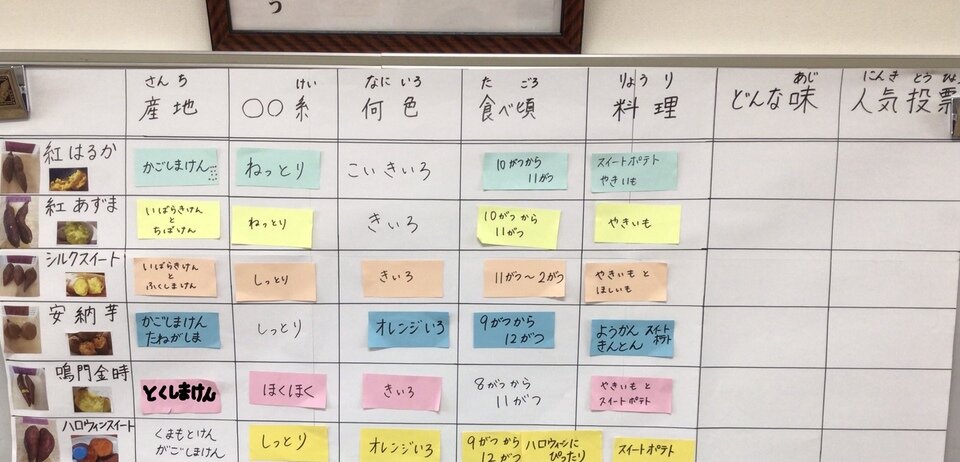 う
さんち けい なにいろ たごろ りょうり あじ にんきとうひょ
産地 〇〇系 何色 食べ頃 料理 どんな味 人気投票
紅はるか
かごしまけん
ねっとり
こいきいろ
10がつから
11がつ
スイートポテト
やきいも
紅あずま
いばらきけん
と
ちばけん
ねっとり
きいろ
10がつから
11がつ
やきいも
シルクスイート
いばらきけん
と
ふくしまけん
しっとり
きいろ
11がつ〜2がつ
やきいもと
ほしいも
安納芋
かごしまけん
たねがしま
しっとり
オレンジいろ
9がつから
12がつ
ようかん スイート
きんとん ポテト
鳴門金時
とくしまけん
ほくほく
きいろ
8がつから
11がつ
やきいもと
スイートポテト
ハロウィンスイート
くまもとけん
かごしまけん
しっとり
オレンジいろ
9がつから ハロウィンに
12がつ ぴったり
スイートポテト